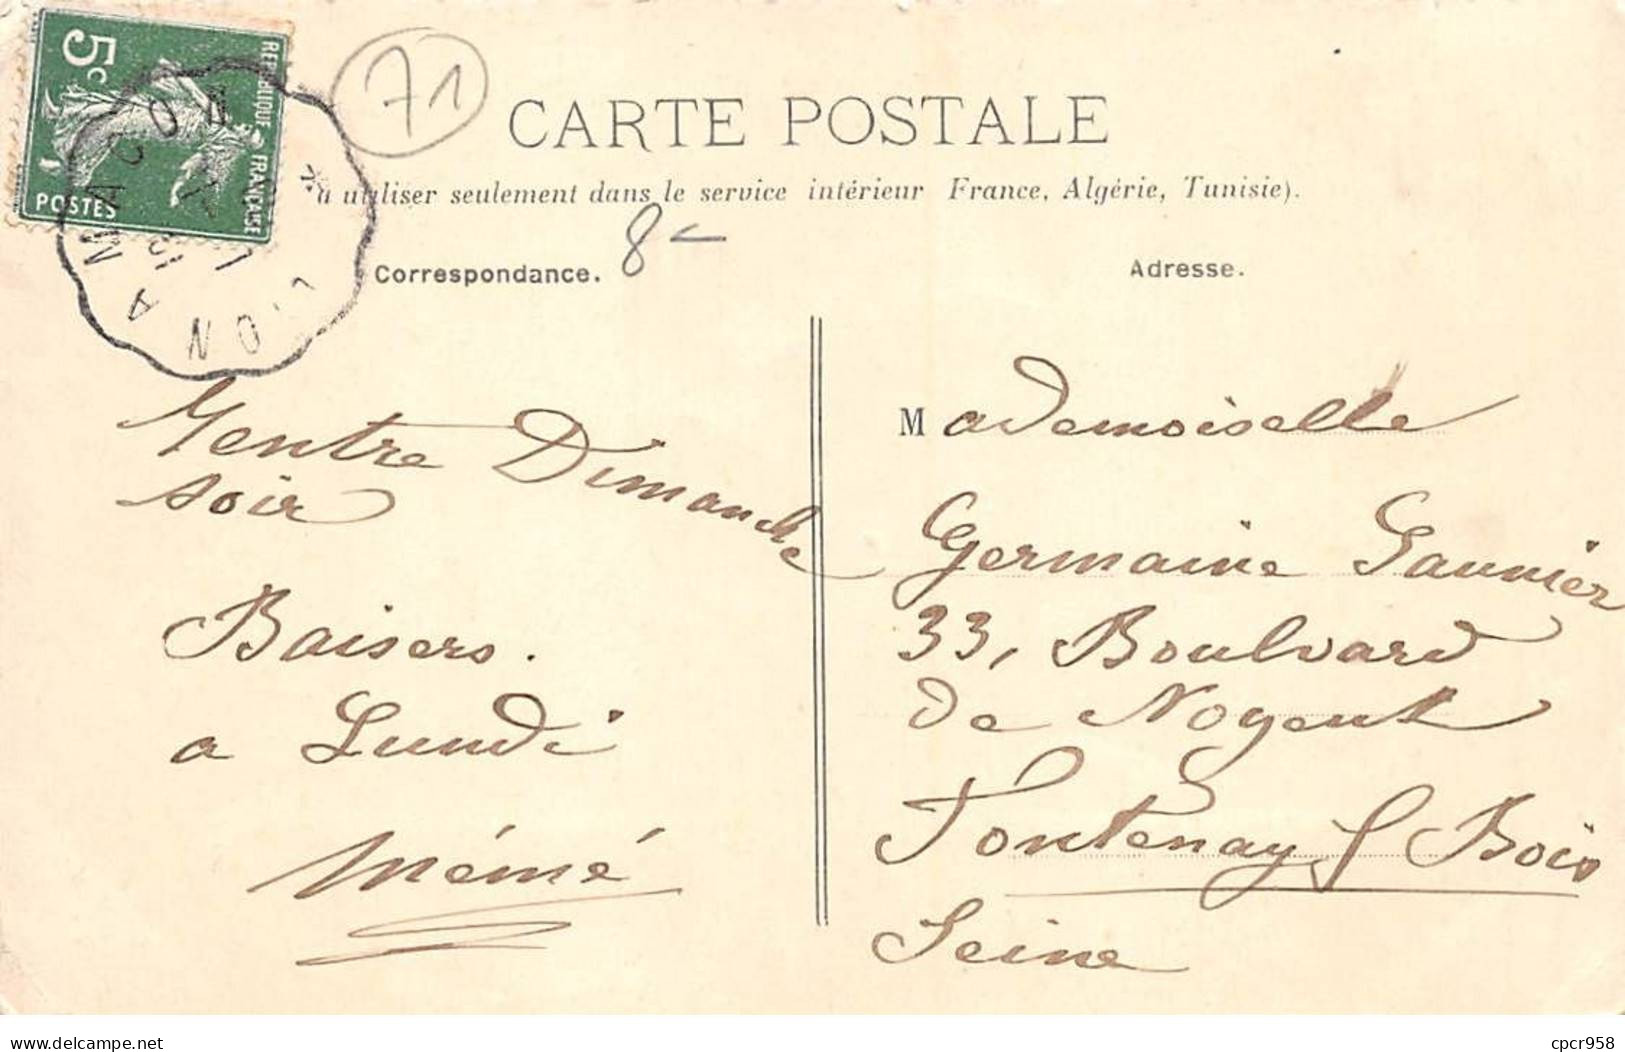 5c
REPUBLIQUE FRANÇAISE
POSTES
71
CARTE POSTALE
à utiliser seulement dans le service intérieur France, Algérie, Tunisie).
8-
Correspondance.
Adresse.
Rentre Dimanche
soir
Baisers.
a Lundi
mémé
Mademoiselle
Germaine Saunier
33, Boulvard
de Nogent
Fontenay s/ Bois
Seine
www.delcampe.net
cpcr958